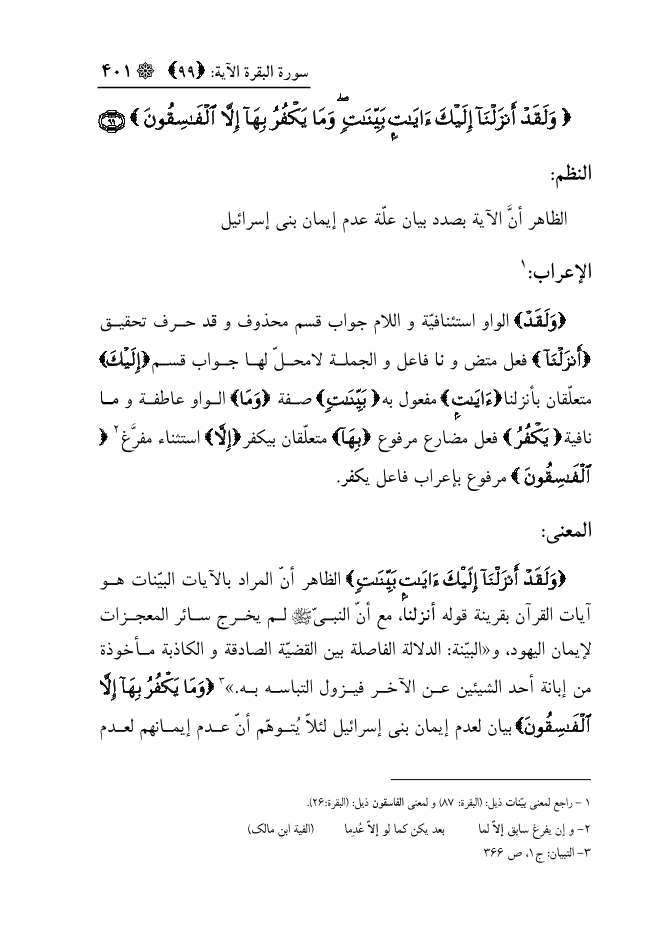 سورة البقرة الآية: ﴿٩٩﴾ ۞ ۴۰۱
﴿ وَلَقَدْ أَنزَلْنَآ إِلَيْكَ ءَايَٰتٍۭ بَيِّنَٰتٍۖ وَمَا يَكْفُرُ بِهَآ إِلَّا ٱلْفَٰسِقُونَ ﴾ ۝٩٩
النظم:
الظاهر أنَّ الآية بصدد بيان علّة عدم إيمان بنى إسرائيل
الإعراب:١
﴿وَلَقَدْ﴾ الواو استئنافيّة و اللام جواب قسم محذوف و قد حرف تحقيق
﴿أَنزَلْنَآ﴾ فعل متض و نا فاعل و الجملة لامحلّ لها جواب قسم ﴿إِلَيْكَ﴾
متعلّقان بأنزلنا ﴿ءَايَٰتٍۭ﴾ مفعول به ﴿بَيِّنَٰتٍ﴾ صفة ﴿وَمَا﴾ الواو عاطفة و ما
نافية ﴿يَكْفُرُ﴾ فعل مضارع مرفوع ﴿بِهَآ﴾ متعلّقان بيكفر ﴿إِلَّا﴾ استثناء مفرَّغ٢ ﴿
ٱلْفَٰسِقُونَ﴾ مرفوع بإعراب فاعل يكفر.
المعنى:
﴿وَلَقَدْ أَنزَلْنَآ إِلَيْكَ ءَايَٰتٍۭ بَيِّنَٰتٍ﴾ الظاهر أنّ المراد بالآيات البيّنات هو
آيات القرآن بقرينة قوله أنزلنا، مع أنّ النبىّ ﷺ لم يخرج سائر المعجزات
لإيمان اليهود، و«البيّنة: الدلالة الفاصلة بين القضيّة الصادقة و الكاذبة مأخوذة
من إبانة أحد الشيئين عن الآخر فيزول التباسه به.»٣ ﴿وَمَا يَكْفُرُ بِهَآ إِلَّا
ٱلْفَٰسِقُونَ﴾ بيان لعدم إيمان بنى إسرائيل لئلاّ يُتوهّم أنّ عدم إيمانهم لعدم
١ – راجع لمعنى بيّنات ذيل: (البقرة: ٨٧) و لمعنى الفاسقون ذيل: (البقرة:٢۶).
٢– و إن يفرغ سابق إلاّ لما بعد يكن كما لو إلاّ عُدِما (الفية ابن مالک)
٣– التبيان: ج١، ص ٣۶۶